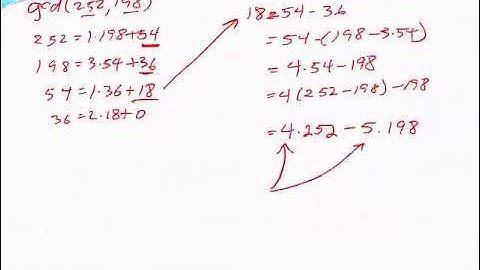 gcd(252, 198)
252 = 1.198+54
198 = 3.54+36
54 = 1.36+18
36 = 2.18+0
18 = 54 - 36
= 54 - (198 - 3.54)
= 4.54 - 198
= 4(252 - 198) - 198
= 4.252 - 5.198